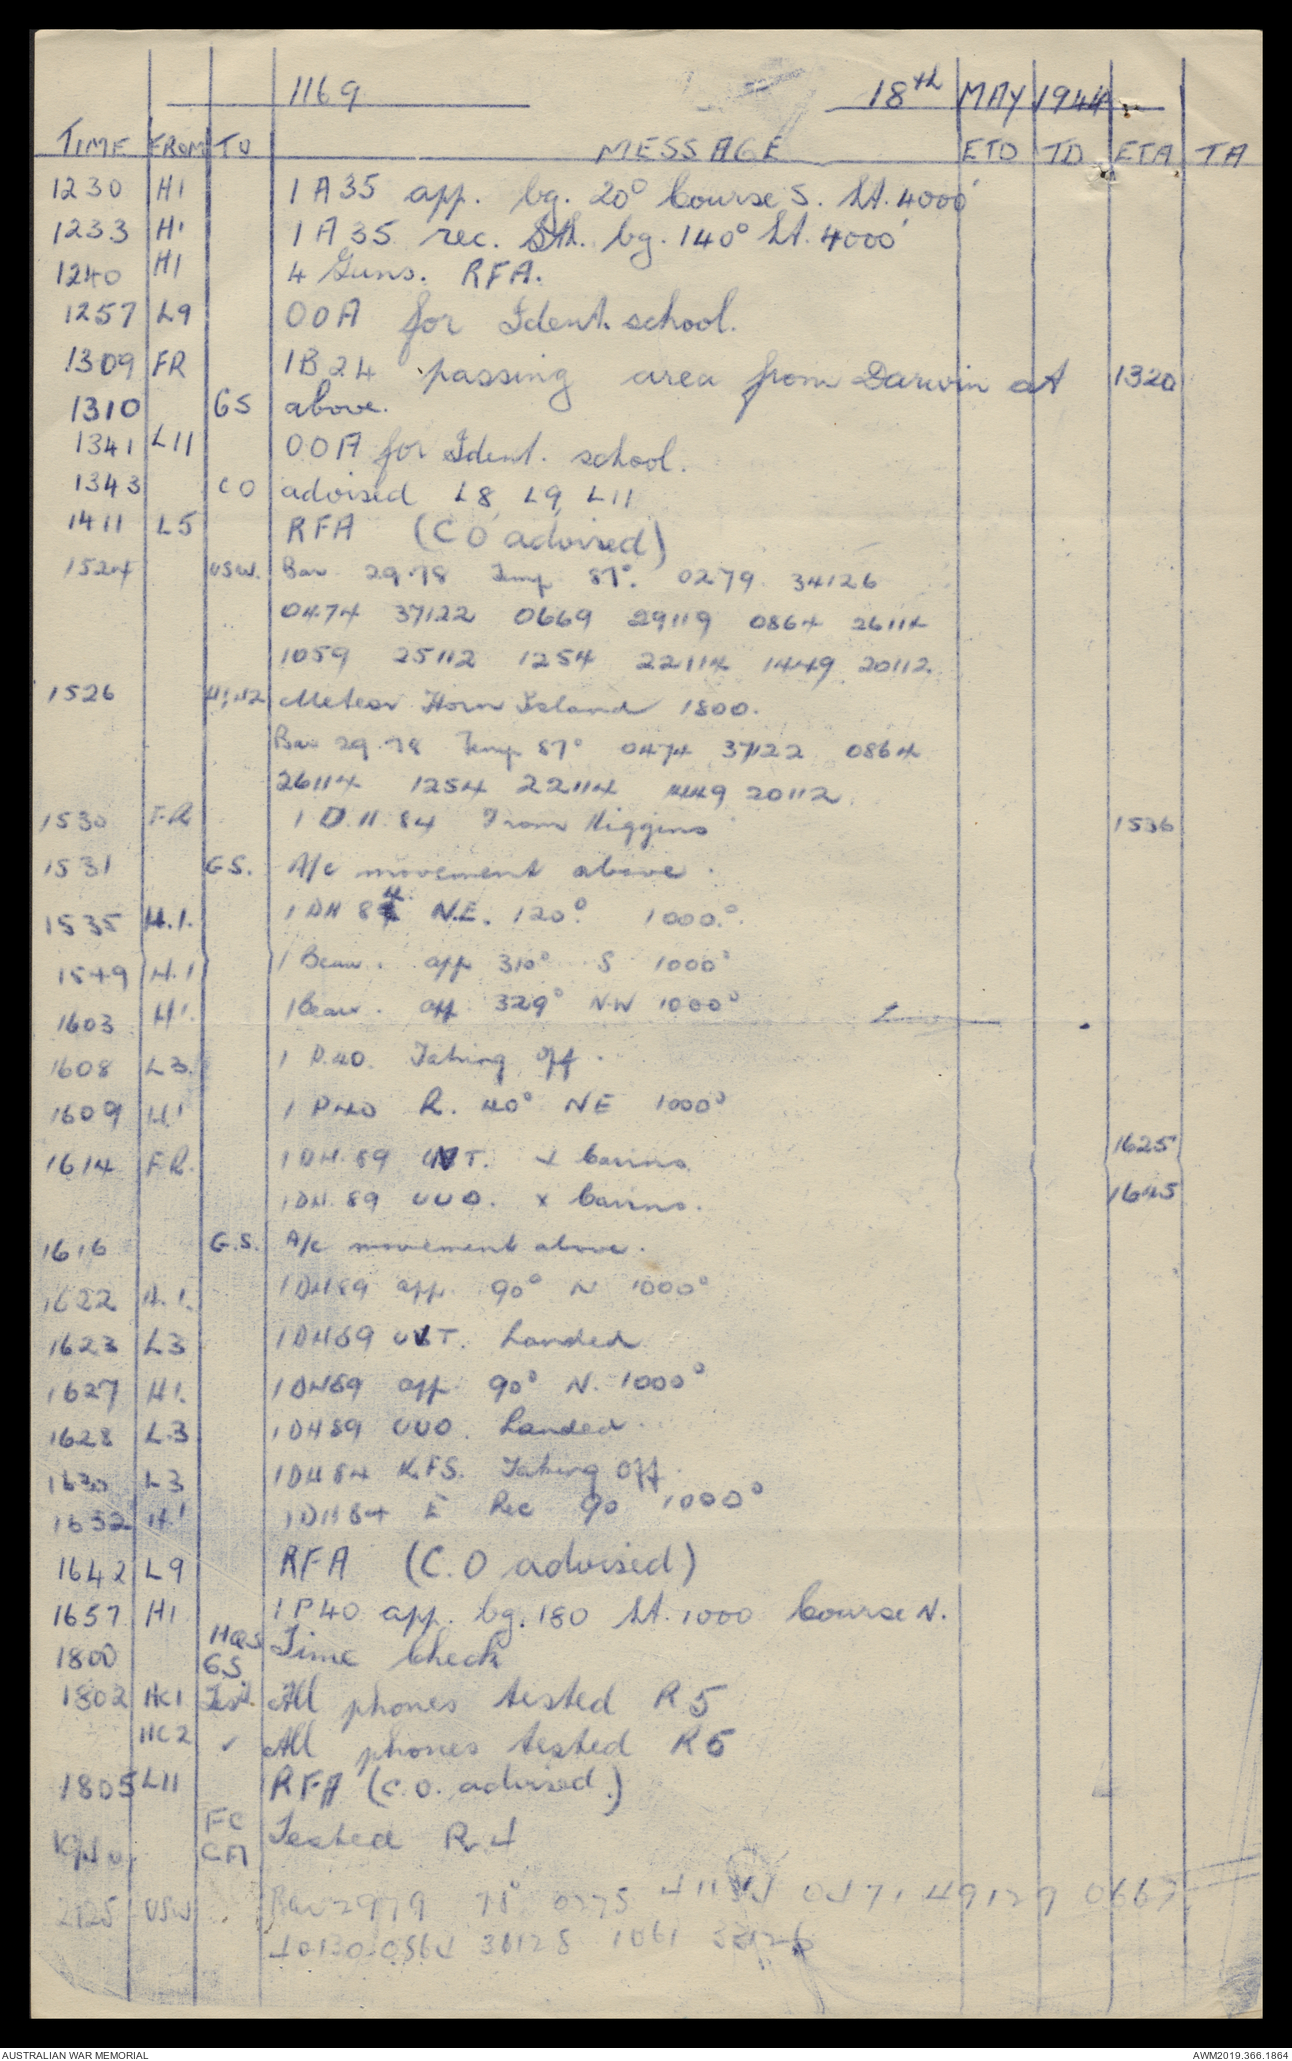 1169 18th MAY 1944
TIME FROM TO MESSAGE ETD TD ETA TA
1230 H1 1 A35 app. bg. 20° Course S. ht. 4000'
1233 H1 1 A35 rec. Sth. bg. 140° ht. 4000'
1240 H1 4 Guns. RFA.
1257 L9 OOA for Ident. school.
1309 FR 1B24 passing area from Darwin at 1320
1310 GS above.
1341 L11 OOA for Ident. school.
1343 CO advised L8, L9, L11
1411 L5 RFA (CO advised)
1524 VSW. Bar 29.78 Temp 87°. 0279 34126
0474 37122 0669 29119 0864 26114
1059 25112 1254 22114 1449 20112.
1526 H1, H2 Meteor Horn Island 1800.
Bar 29.78 Temp 87° 0474 37122 0864
26114 1254 22114 1449 20112.
1530 F.R. 1 D.H. 84 From Higgins 1536
1531 G.S. A/c movement above.
1535 H.1. 1 DH 84 N.E. 120° 1000°.
1549 H.1 1 Beau. app 310° S 1000°
1603 H1. 1 Beau. app. 329° NW 1000°
1608 L3. 1 P.40. Taking off.
1609 H.1 1 P40 R. 40° NE 1000°
1614 F.R. 1 DH. 89 T. x Cairns 1625
1 DH. 89 UUO. x Cairns. 1645
1616 G.S. A/c movement above.
1622 H.1. 1 DH89 app. 90° N 1000°
1623 L3 1 DH89 T. Landed
1627 H1. 1 DH89 app. 90° N. 1000°
1628 L.3 1 DH89 UUO. Landed.
1630 L3 1 DH84 K.FS. Taking off.
1632 H.1 1 DH84 E Rec 90 1000°
1642 L9 RFA (C.O advised)
1657 H1 1 P40 app. bg. 180 ht. 1000 Course N.
1800 HQS GS Time Check
1802 HC1 Test. All phones tested R5
HC2 ✓ All phones tested R5
1805 L11 RFA (C.O. advised.)
FC CA Tested R.4
2125 VSW Bar 2979 0275 0471 49129 0667
1061
AUSTRALIAN WAR MEMORIAL AWM2019.366.1864